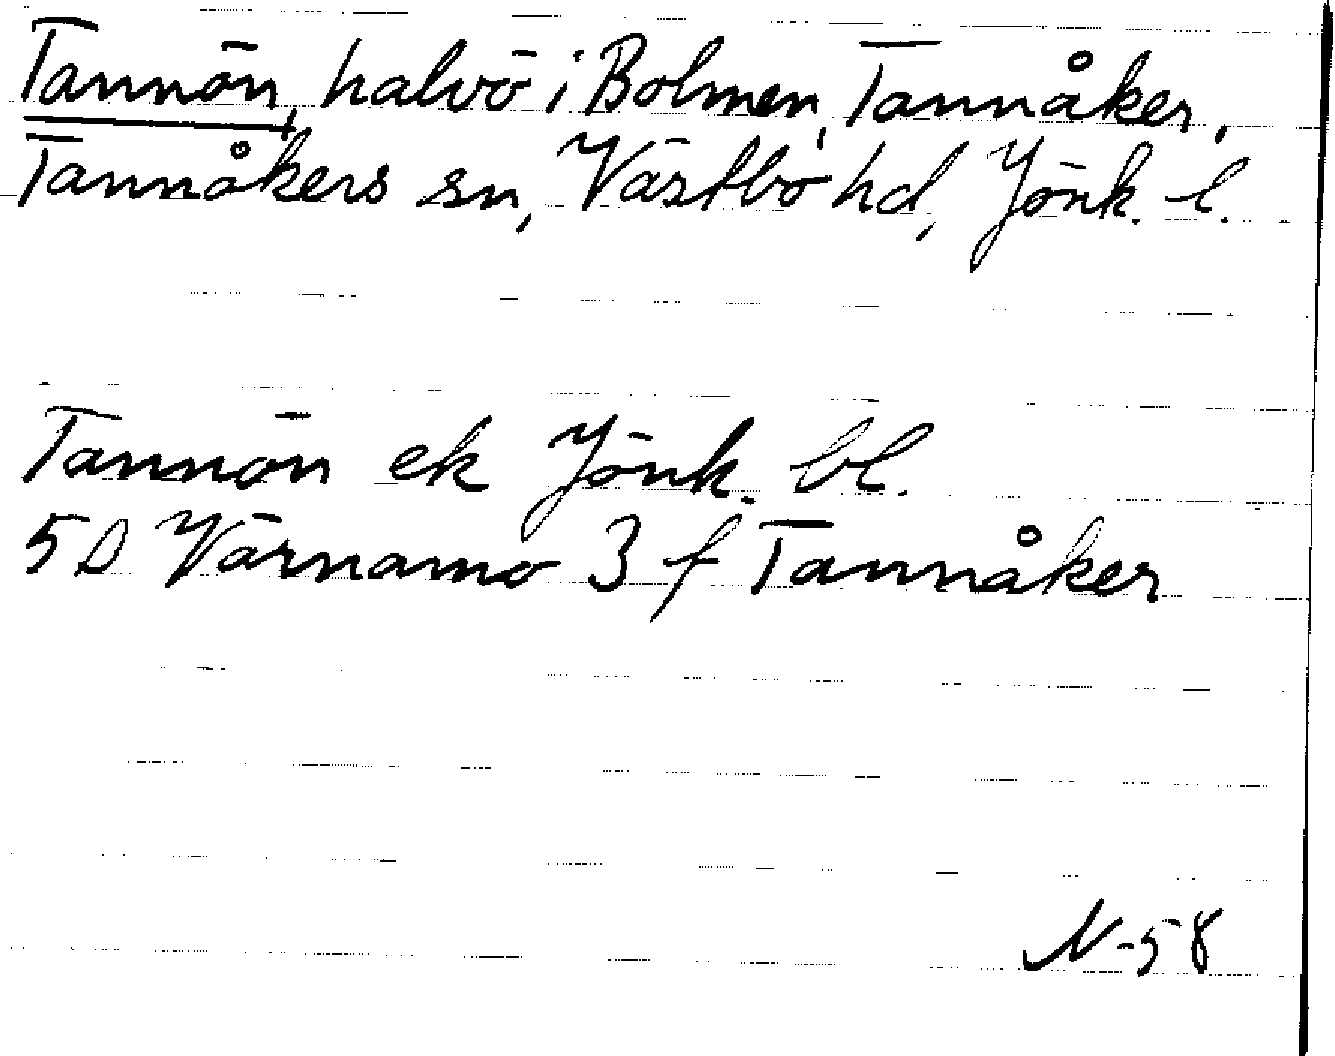 Tannön, halvö i Bolmen, Tannåker,
Tannåkers sn, Västbo hd, Jönk. l.
Tannön ek Jönk. bl.
5 D Värnamo 3 f Tannåker
N-58